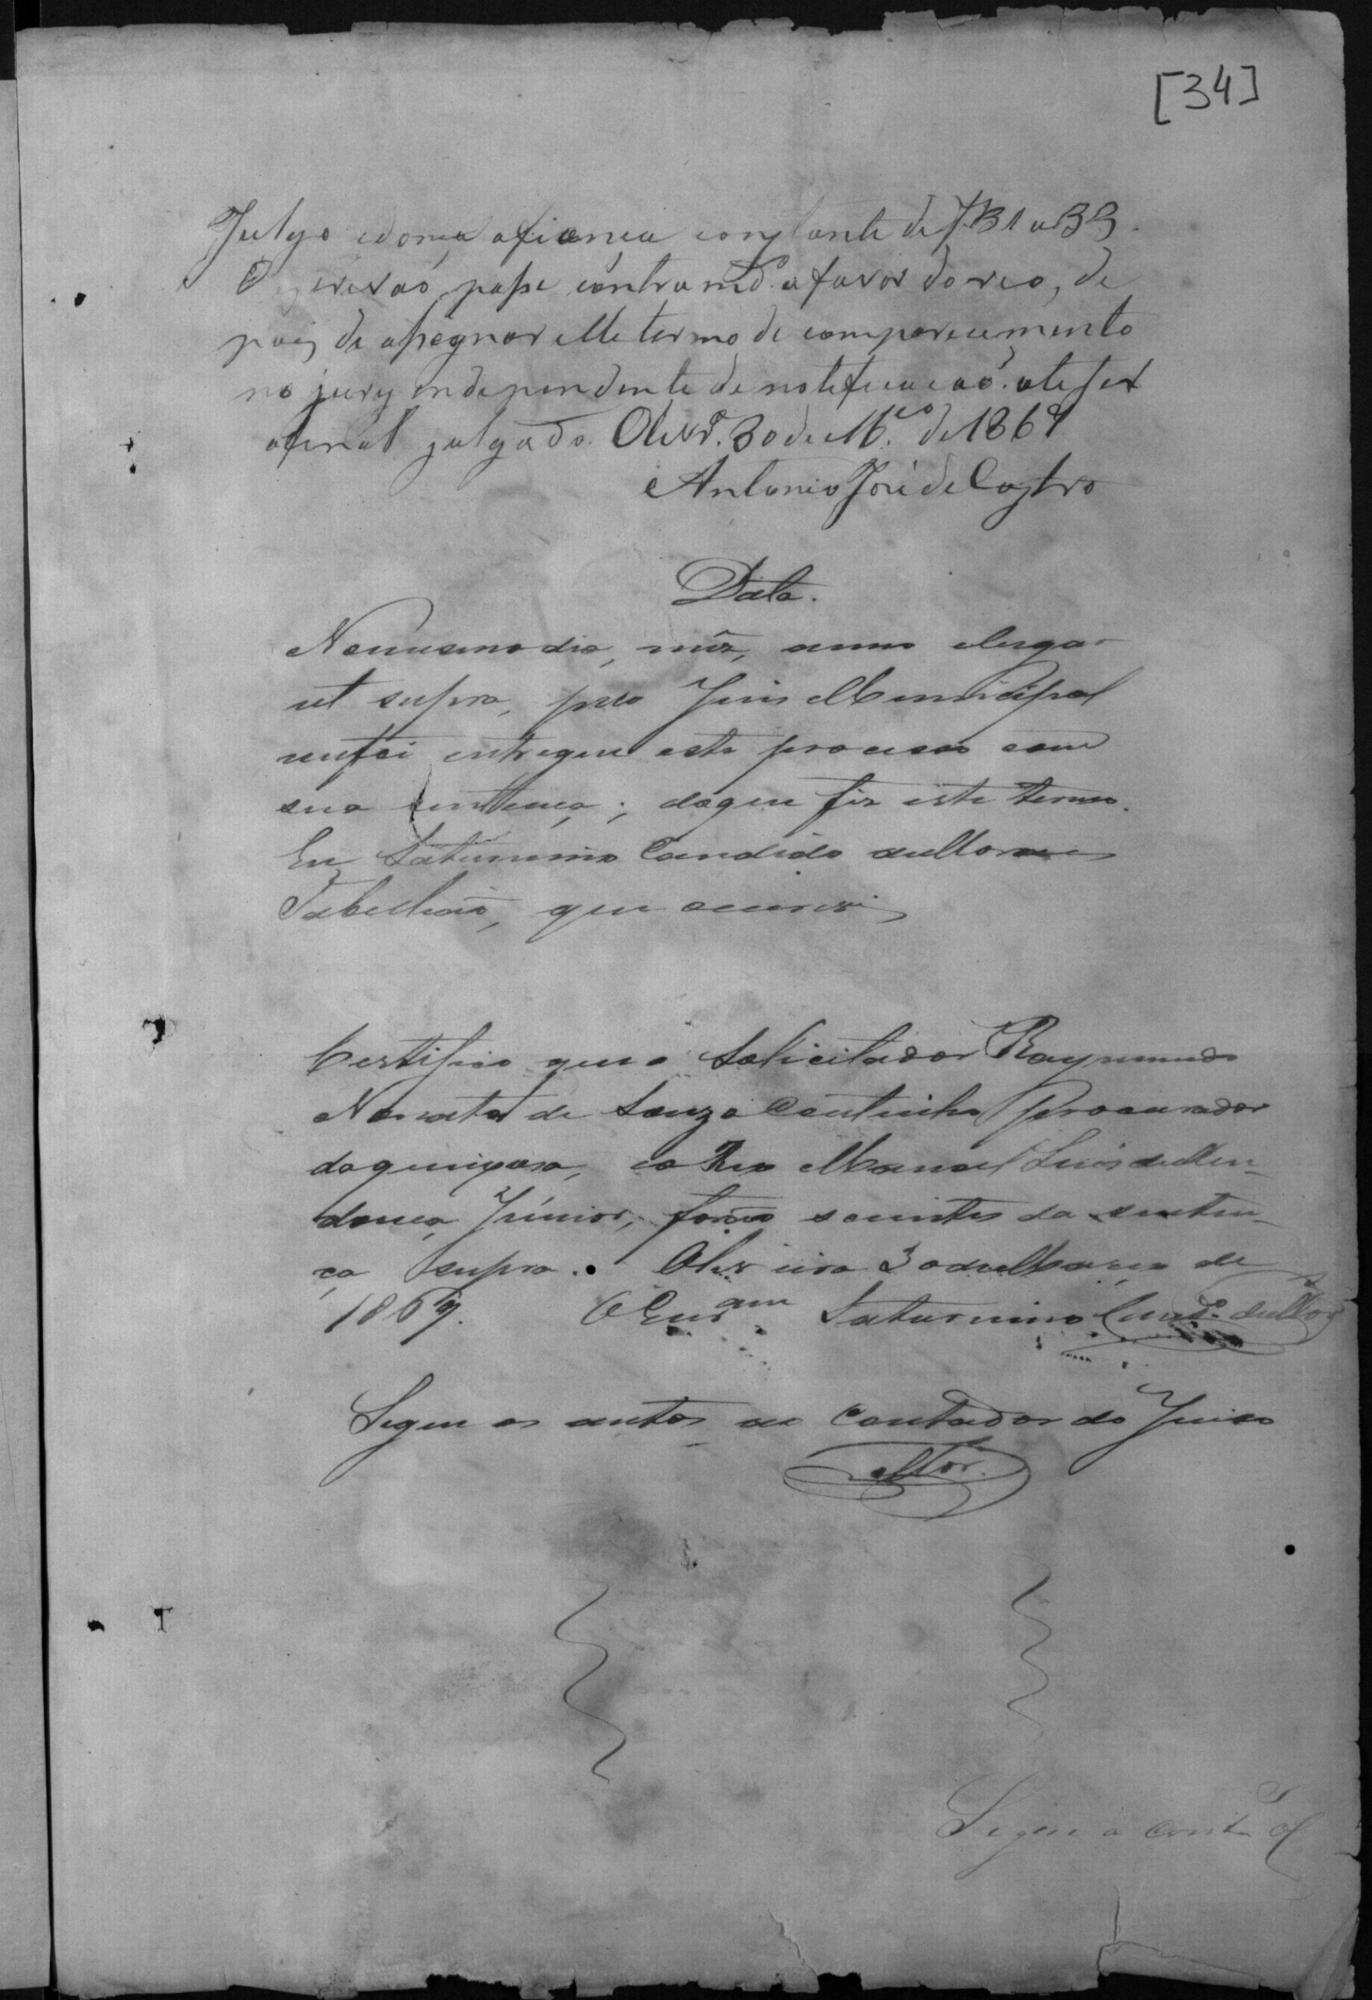 [34]
Julgo idonea afianca constante de f 31 a 33.
O escrivaõ, passe contramd.º a favor do reo, de
pois de assegnar elle termo de comparecimento
no jury independente de notificacaõ. ate ser
afinal julgado. Olivrª. 30 de Mço. de 1869
Antonio José de Castro
Data.
Nomesmo dia, mez, anno elugar
ut supra, pelo Juis Municipal
mefoi entregue este processo com
sua sentença; doque fiz este termo.
Eu Saturnino Candido
Tabelliaõ, que escrevi
Certifico que o Solicitador Raymundo
Nonato de Souza Coutinho Procurador
da queixosa, eo Reo Manoel Luis de Men-
donca Júnior, foraõ scientes da senten-
ça supra. Oliveira 30 de Março de
1869. OEscram Saturnino Cand.º
Segue os autos ao Contador do Juiso
Segue a conta